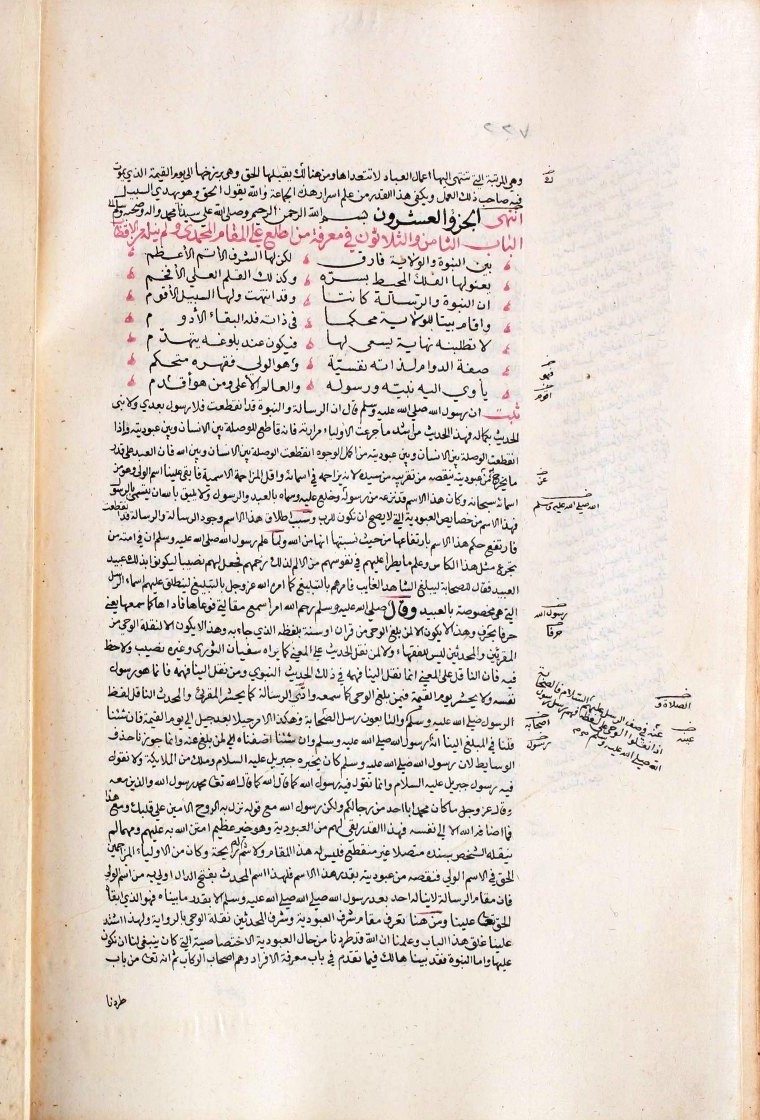 ٢٢٧
وهي المرتبة التي تنتهي اليها اعمال العباد لا تتعداها ومن هنالك يقبلها الحق وهي برزخها الى يوم القيمة الذي يموت
فيه صاحب ذلك العمل ويكفي هذا القدر من علم اسرار هذه الجماعة والله يقول الحق وهو يهدي السبيل
انتهى الجزء والعشرون بسم الله الرحمن الرحيم وصلى الله على سيدنا محمد واله وصحبه وسلم
الباب الثامن والثلاثون في معرفة من اطلع على المقام المحمدي ولم ينله من الاقطاب
بين النبوة والولاية فارق لكن لها الشرف الأتم الأعظم
يعنو لها الفلك المحيط بسره وكذلك القلم العلي الأفخم
ان النبوة والرسالة كانتا وقد انتهت ولها السبيل الأقوم
واقام بيتا للولاية محكما في ذاته فله البقاء الأدوم
لا تطلبنه نهاية يسعى لها فيكون عند بلوغه يتهدم
صفة الدوام لذاته نفسية وهو الولي فقهره متحكم
يأوي اليه نبيه ورسوله والعالم الأعلى ومن هو أقدم
ثبت ان رسول الله صلى الله عليه وسلم قال ان الرسالة والنبوة قد انقطعت فلا رسول بعدي ولا نبي
الحديث بكماله فهذا الحديث من أشد ما جرعت الأولياء مرارته فانه قاطع للوصلة بين الانسان وبين عبوديته واذا
انقطعت الوصلة بين الانسان وبين عبوديته من اكمل الوجوه انقطعت الوصلة بين الانسان وبين الله فان العبد على قدر
ما يخرج عن عبوديته ينقصه من تقريبه من سيده لانه يزاحمه في اسمائه واقل المزاحمة الاسمية فابقى علينا اسم الولي وهو من
اسمائه سبحانه وكان هذا الاسم قد نزعه من رسوله وخلع عليه وسماه بالعبد والرسول ولا يليق بالله ان يسمى بالرسول
فهذا الاسم من خصايص العبودية التي لا يصح ان تكون للرب وسبب اطلاق هذا الاسم وجود الرسالة والرسالة قد انقطعت
فارتفع حكم هذا الاسم بارتفاعها من حيث نسبتها انها من الله ولما علم رسول الله صلى الله عليه وسلم ان في امته من
يجرع مثل هذا الكاس وعلم ما يطرأ عليهم في نفوسهم من الألم لذلك رحمهم فجعل لهم نصيبا ليكونوا بذلك عبيد
العبيد فقال للصحابة ليبلغ الشاهد الغايب فامرهم بالتبليغ كما امره الله عز وجل بالتبليغ لينطلق عليهم اسماء الرسل
التي هي مخصوصة بالعبيد وقال صلى الله عليه وسلم رحم الله امرأ سمع مقالتي فوعاها فاداها كما سمعها يعني
حرفا بحرف وهذا لا يكون الا لمن بلغ الوحي من قران او سنة بلفظه الذي جاء به وهذا لا يكون الا لنقلة الوحي من
المقربين والمحدثين ليس للفقهاء ولا لمن نقل الحديث على المعنى كما يراه سفيان الثوري وغيره نصيب ولا حظ
فيه فان الناقل على المعنى انما نقل الينا فهمه في ذلك الحديث النبوي ومن نقل الينا فهمه فانما هو رسول
نفسه ولا يحشر يوم القيمة فيمن بلغ الوحي كما سمعه وادى الرسالة كما يحشر المقري والمحدث الناقل لفظ
الرسول صلى الله عليه وسلم والتابعون رسل الصحابة وهكذا الامر جيلا بعد جيل الى يوم القيمة فان شئنا
قلنا في المبلغ الينا انه رسول الله صلى الله عليه وسلم وان شئنا اضفناه الى لمن بلغ عنه وانما جوزنا حذف
الوسايط لان رسول الله صلى الله عليه وسلم كان يخبره جبريل عليه السلام وملك من الملايكة ولا نقول
فيه رسول جبريل عليه السلام وانما نقول فيه رسول الله كما قال الله تعالى محمد رسول الله والذين معه
وقال عز وجل ما كان محمد ابا احد من رجالكم ولكن رسول الله مع قوله نزل به الروح الأمين على قلبك ومع هذا
فما اضافه الله الا الى نفسه فهذا القدر بقي لهم من العبودية وهو خير عظيم امتن الله به عليهم ومهما لم
ينقله الشخص بسنده متصلا غير منقطع فليس له هذا المقام ولا شم له رايحة وكان من الاولياء المزاحمين
الحق في الاسم الولي فنقصه من عبوديته بقدر هذا الاسم فلهذا اسم المحدث بفتح الدال اولى به من اسم الولي
فان مقام الرسالة لا يناله احد بعد رسول الله صلى الله عليه وسلم الا بقدر ما بيناه فهو الذي ابقاه
الحق تعالى علينا ومن هنا تعرف مقام شرف العبودية وشرف المحدثين نقلة الوحي بالرواية ولهذا اشتد
علينا غلق هذا الباب وعلمنا ان الله قد طردنا من حال العبودية الاختصاصية التي كان ينبغي لنا ان نكون
عليها واما النبوة فقد بيناها لك فيما تقدم في باب معرفة الافراد وهم اصحاب الركاب ثم انه تعالى من باب
طردنا
فهو
اقوم
عن
الله صلى الله عليه وسلم
رسول الله
حرفا
الصلاة و
عينه
اصحابه
رسول